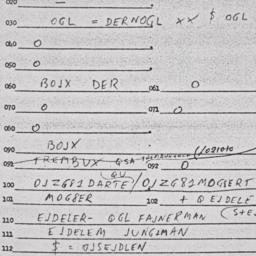 020
030 OGL = DERNOGL XX $ OGL
040 O
050 O
060 BOJX DER 061 O
070 O 071 O
080 O
090 BOJX
091 092 O
100 OJZG81DARTE/OJZG81MOGBERT
101 MOGBER 102 + Q EJDELE
110 EJDELER- OGL FAJNERMAN
111 EJDELEM JUNGJMAN
112 $ = OJSEJDLEN